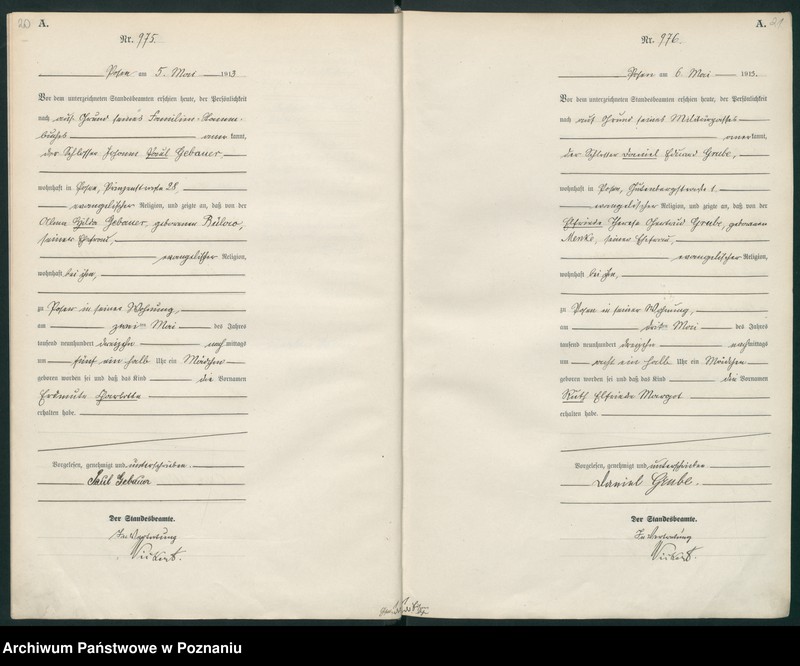 20
A.
Nr. 975.
Posen am 5. Mai 1913
Vor dem unterzeichneten Standesbeamten erschien heute, der Persönlichkeit
nach auf Grund seines Familien-Stamm-
buches anerkannt,
der Schlosser Johannes Paul Gebauer,
wohnhaft in Posen, 28,
evangelischer Religion, und zeigte an, daß von der
Hilda Gebauer, geborenen Bülow,
seiner Ehefrau,
evangelischer Religion,
wohnhaft bei ihm,
zu Posen in seiner Wohnung,
am zweiten Mai des Jahres
tausend neunhundert dreizehn nachmittags
um fünf ein halb Uhr ein Mädchen
geboren worden sei und daß das Kind die Vornamen
Erdmute Charlotte
erhalten habe.
Vorgelesen, genehmigt und unterschrieben.
Paul Gebauer
Der Standesbeamte.
In Vertretung
A.
21
Nr. 976.
Posen am 6. Mai 1913.
Vor dem unterzeichneten Standesbeamten erschien heute, der Persönlichkeit
nach auf Grund seines Militärpasses
anerkannt,
der Schlosser Daniel Eduard Grube,
wohnhaft in Posen, Gutenbergstraße 1
evangelischer Religion, und zeigte an, daß von der
Elfriede Therese Grube, geborenen
Menke, seiner Ehefrau,
evangelischer Religion,
wohnhaft bei ihm,
zu Posen in seiner Wohnung,
am dritten Mai des Jahres
tausend neunhundert dreizehn nachmittags
um acht ein halb Uhr ein Mädchen
geboren worden sei und daß das Kind die Vornamen
Ruth Elfriede Margot
erhalten habe.
Vorgelesen, genehmigt und unterschrieben
Daniel Grube.
Der Standesbeamte.
In Vertretung
Archiwum Państwowe w Poznaniu